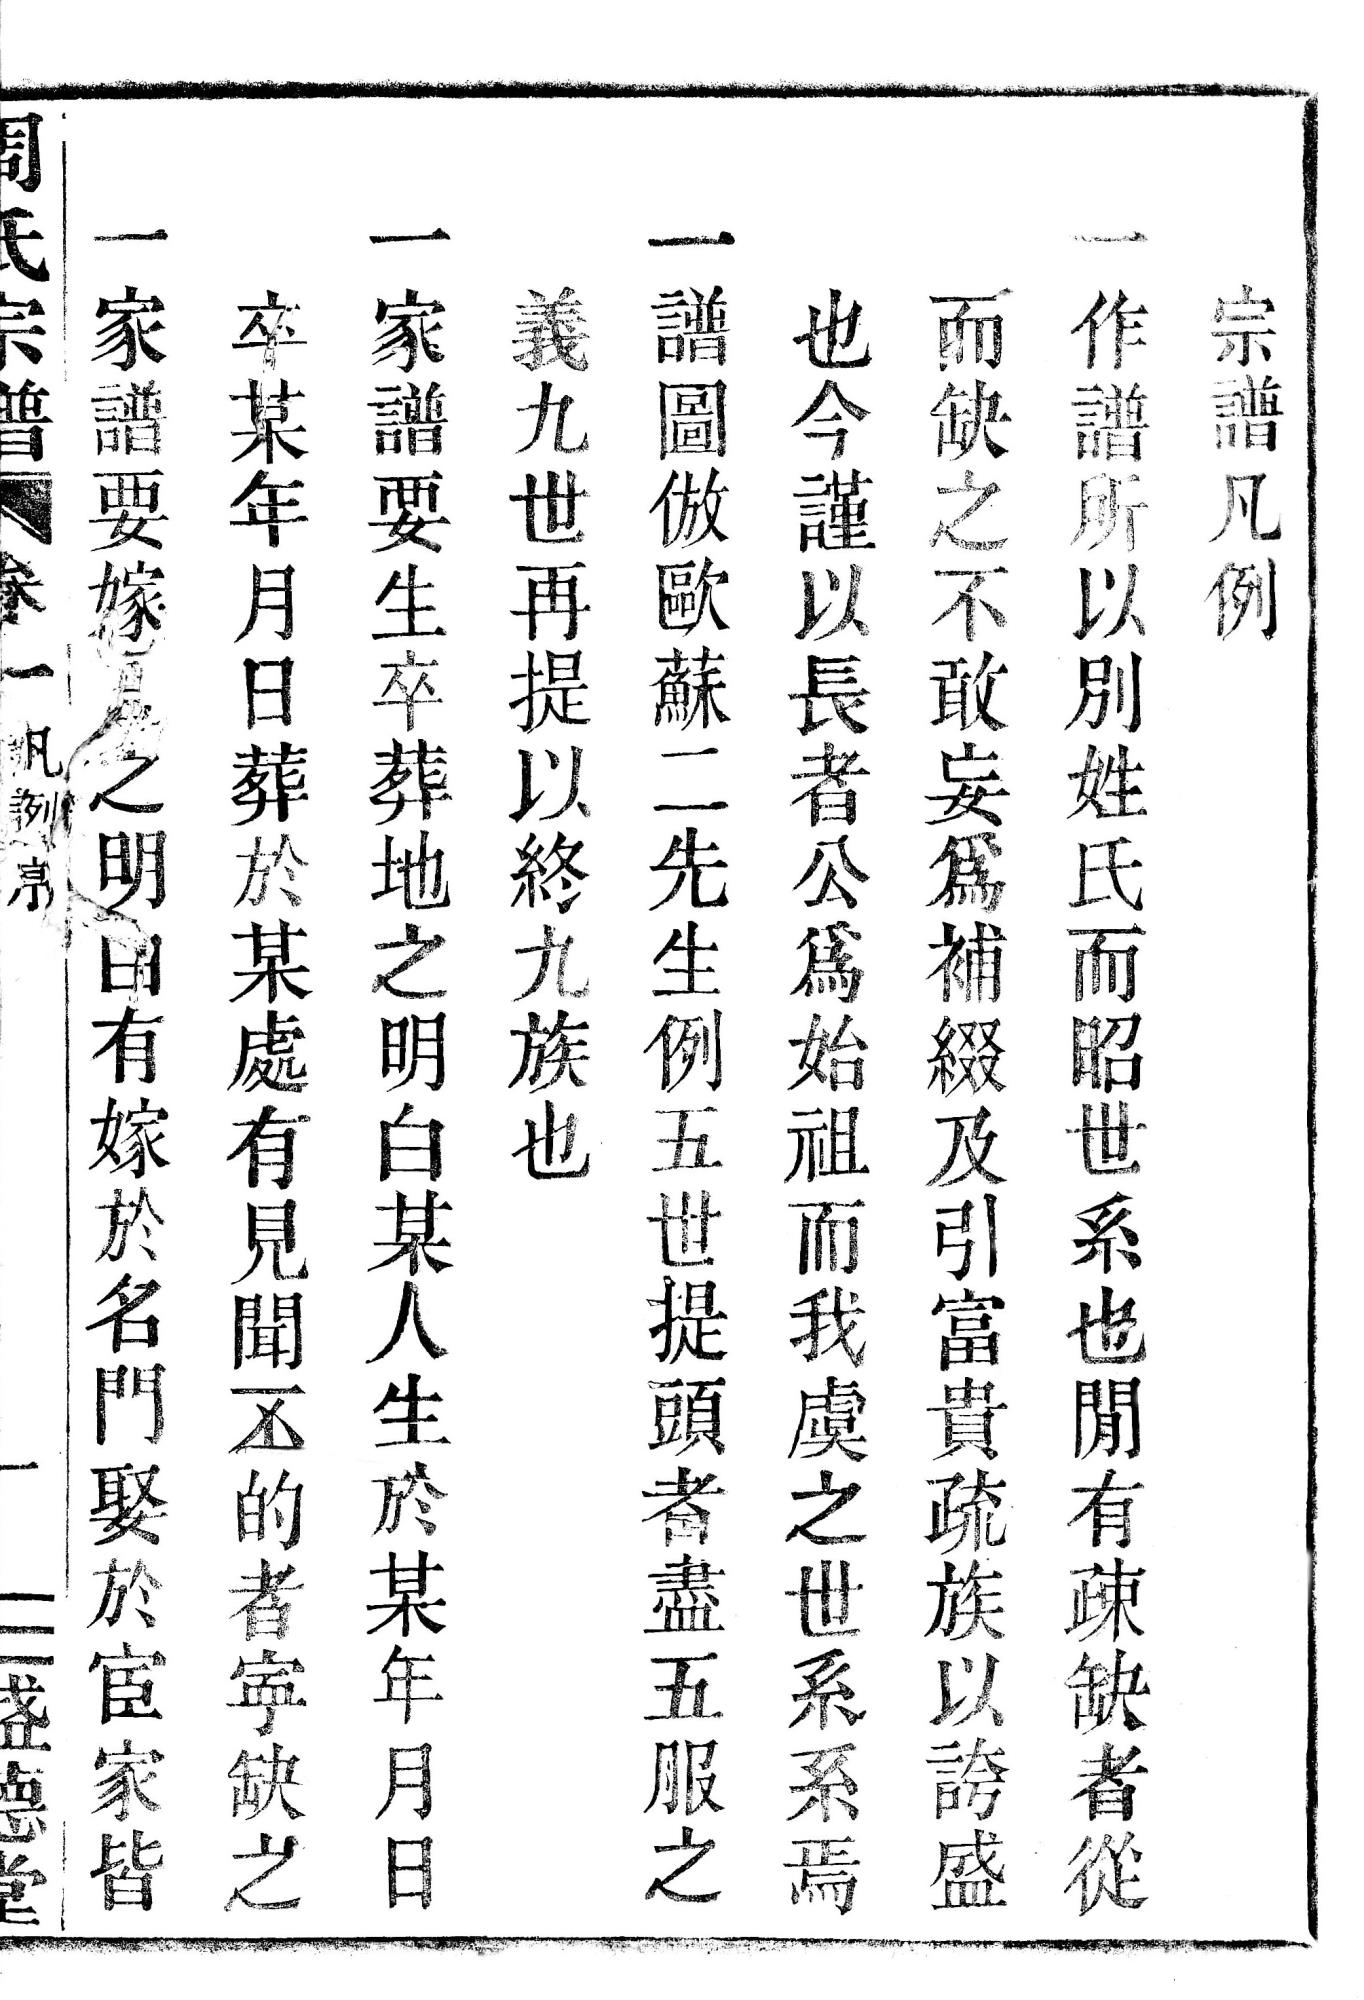 宗譜凡例
一作譜所以別姓氏而昭世系也閒有疎缺者從
而缺之不敢妄爲補綴及引富貴疏族以誇盛
也今謹以長者公爲始祖而我虞之世系系焉
一譜圖倣歐蘇二先生例五世提頭者盡五服之
義九世再提以終九族也
一家譜要生卒葬地之明白某人生於某年月日
卒某年月日葬於某處有見聞不的者寜缺之
一家譜要嫁之明白有嫁於名門娶於宦家皆
周氏宗譜 卷一 凡例 一 盛德堂